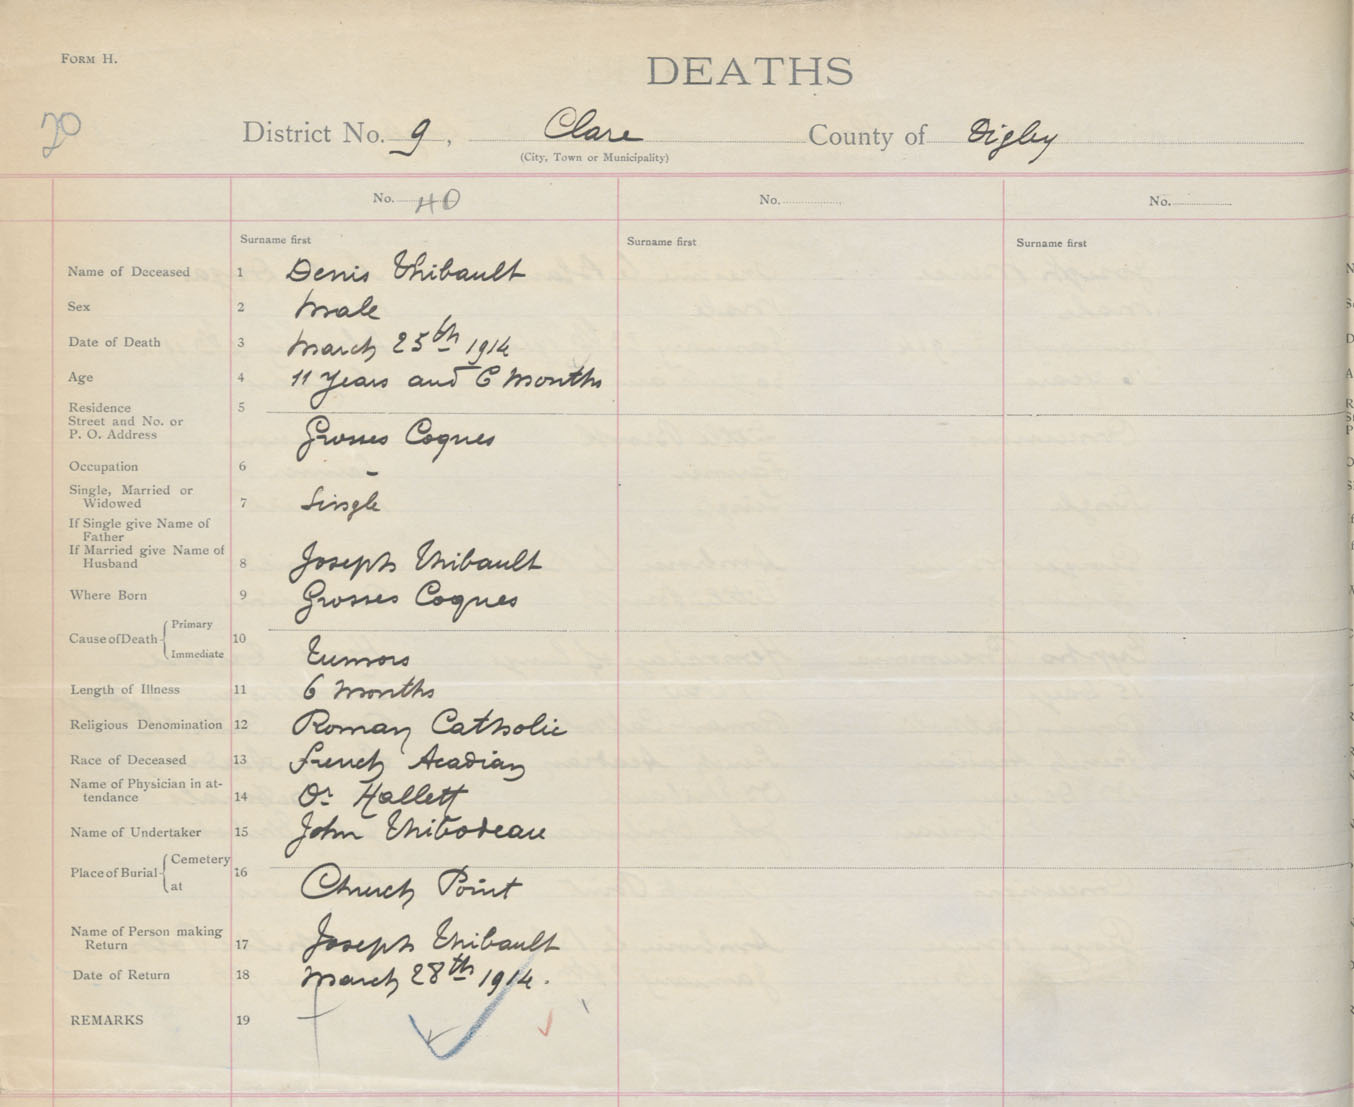 FORM H.
DEATHS
20
District No. 9, Clare County of Digby
(City, Town or Municipality)
No. 40 No. No.
Surname first Surname first Surname first
Name of Deceased 1 Denis Thibault
Sex 2 Male
Date of Death 3 March 25th 1914
Age 4 11 Years and 6 Months
Residence 5
Street and No. or
P. O. Address Grosses Coques
Occupation 6 -
Single, Married or
Widowed 7 Single
If Single give Name of
Father
If Married give Name of
Husband 8 Joseph Thibault
Where Born 9 Grosses Coques
Cause of Death { Primary 10
Immediate Tumors
Length of Illness 11 6 Months
Religious Denomination 12 Roman Catholic
Race of Deceased 13 French Acadian
Name of Physician in at-
tendance 14 Dr Hallett
Name of Undertaker 15 John Thibodeau
Place of Burial { Cemetery 16
at Church Point
Name of Person making
Return 17 Joseph Thibault
Date of Return 18 March 28th 1914.
REMARKS 19